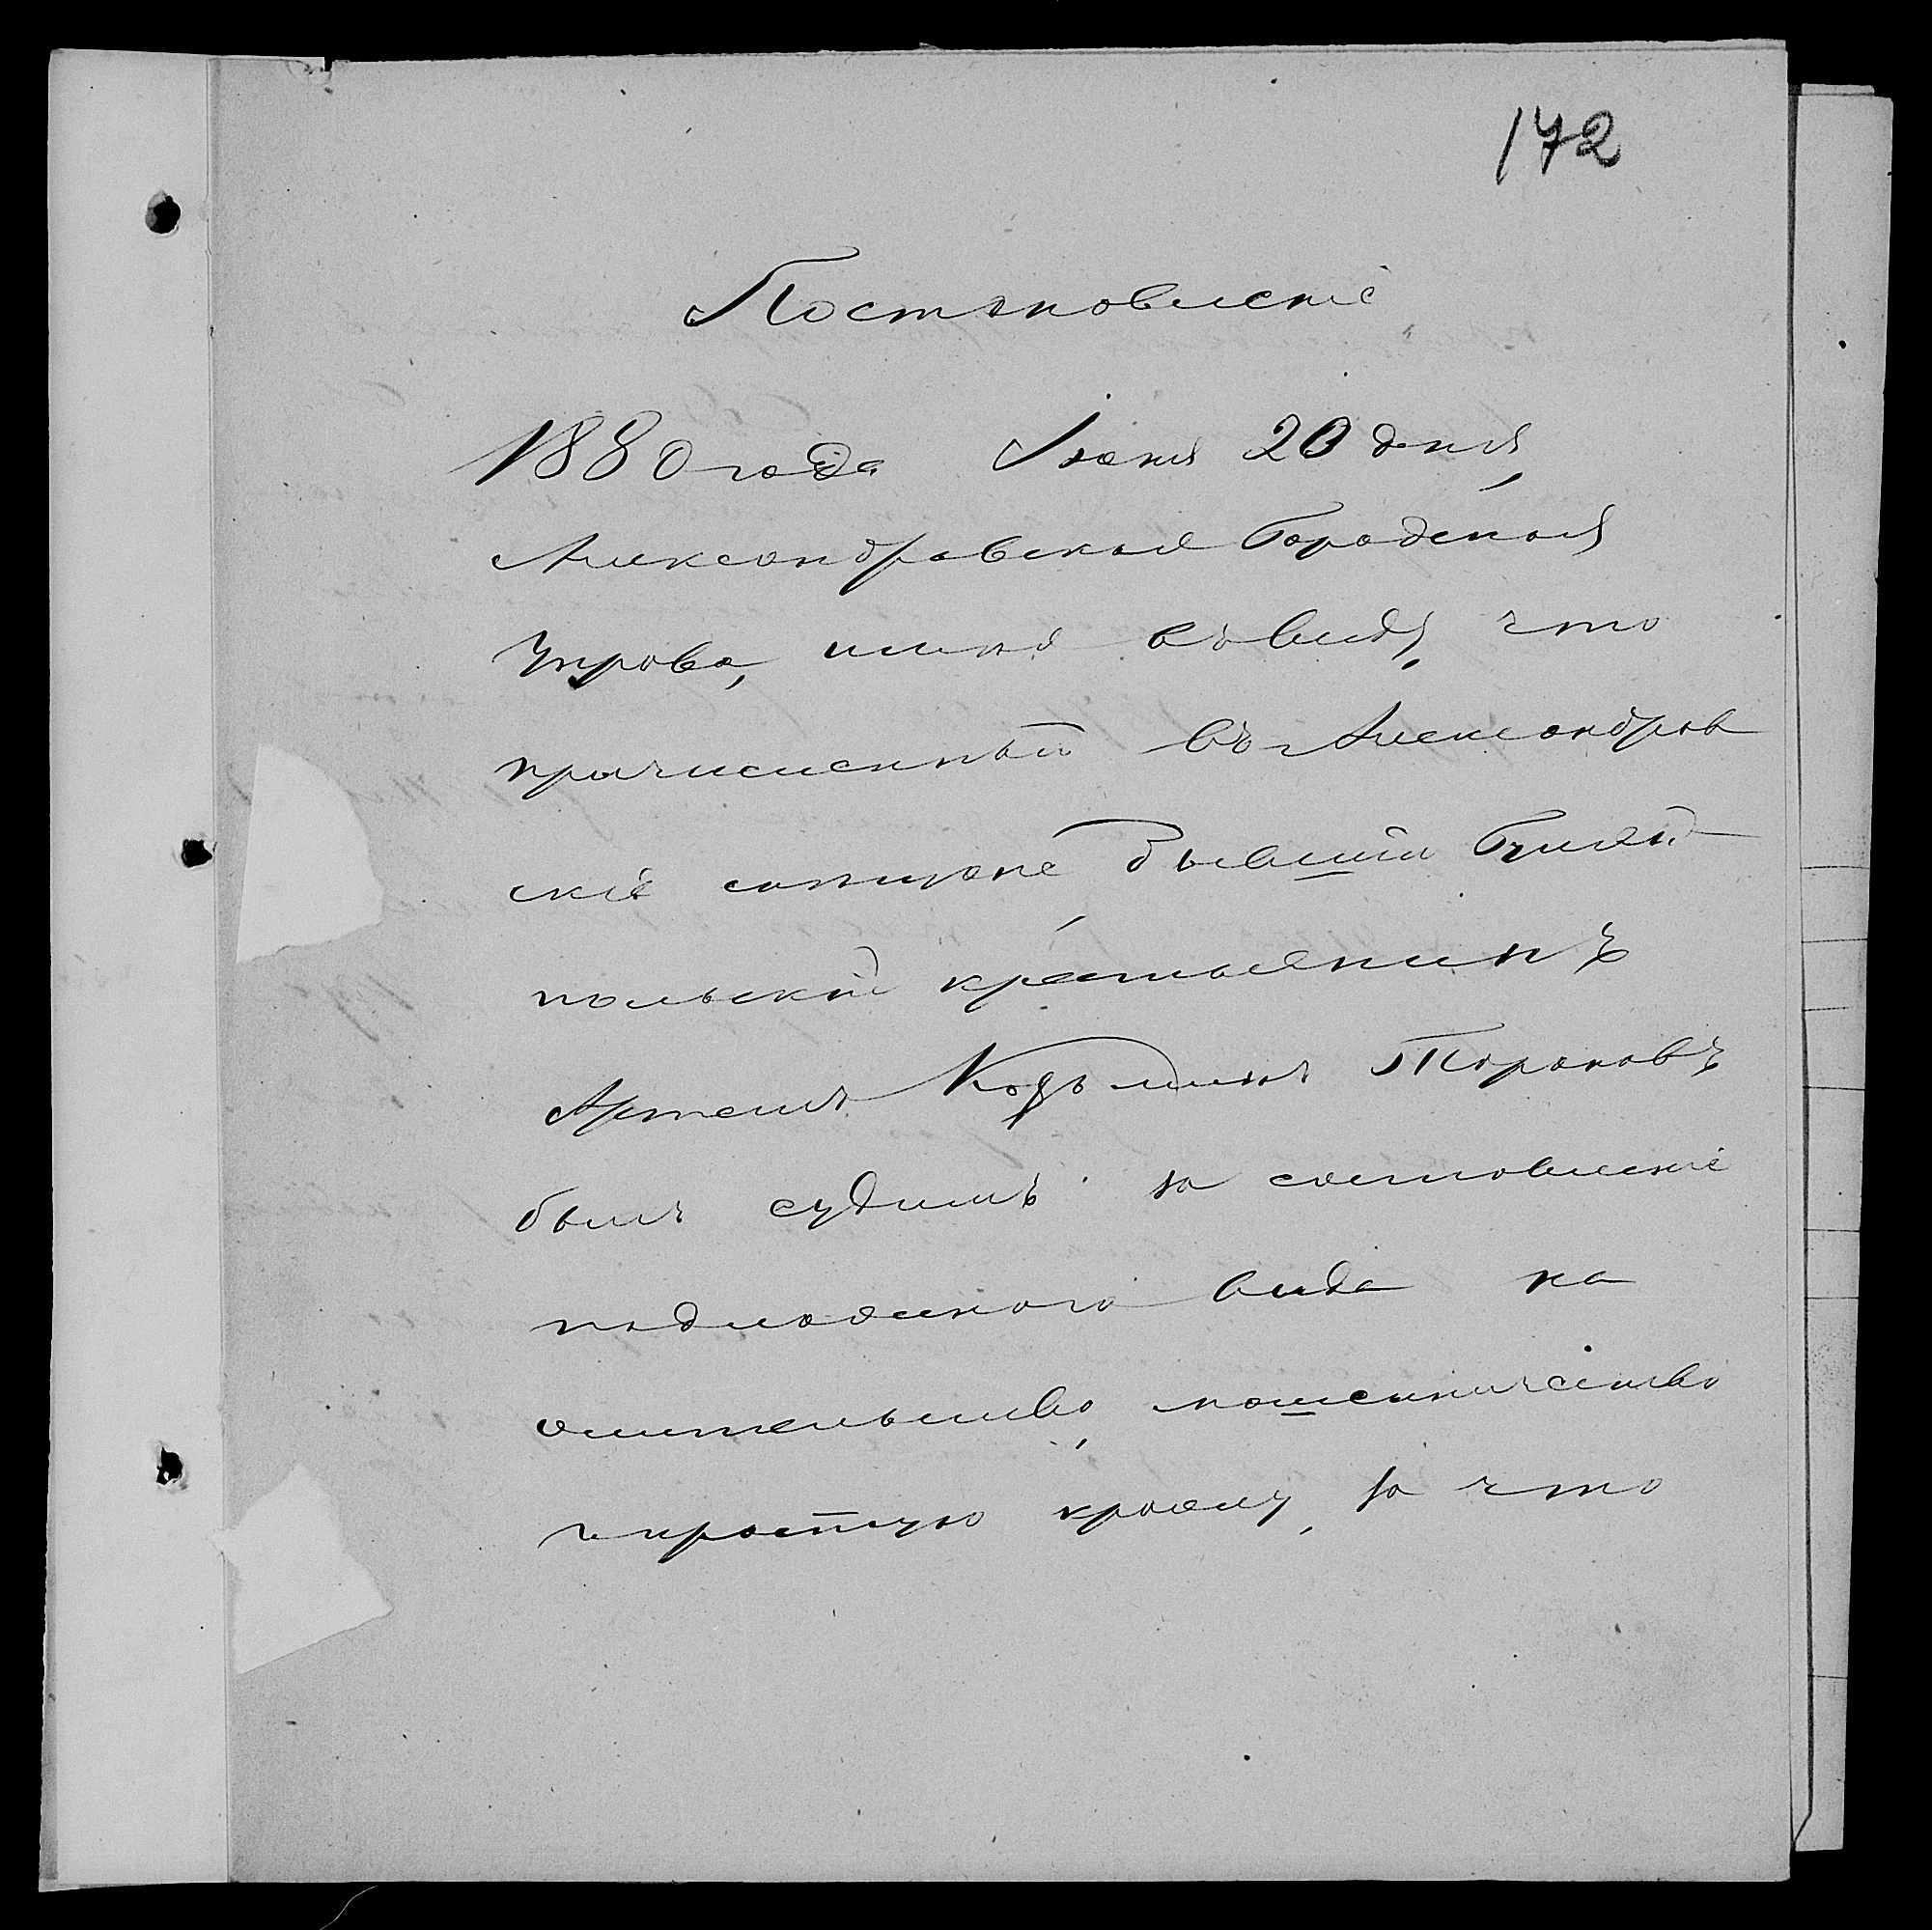 172
Постановленіе
1880 года Іюня 20 дня,
Александровская Городская
Управа, имея въ виду, что
причисленный въ Александров
скіе мещане бывшій Гуляй-
польскій крестьянинъ
Артемъ Козьминъ Тарановъ
былъ судимъ за составленіе
подложнаго вида на
жительство, мошенничество
и простую кражу, за что